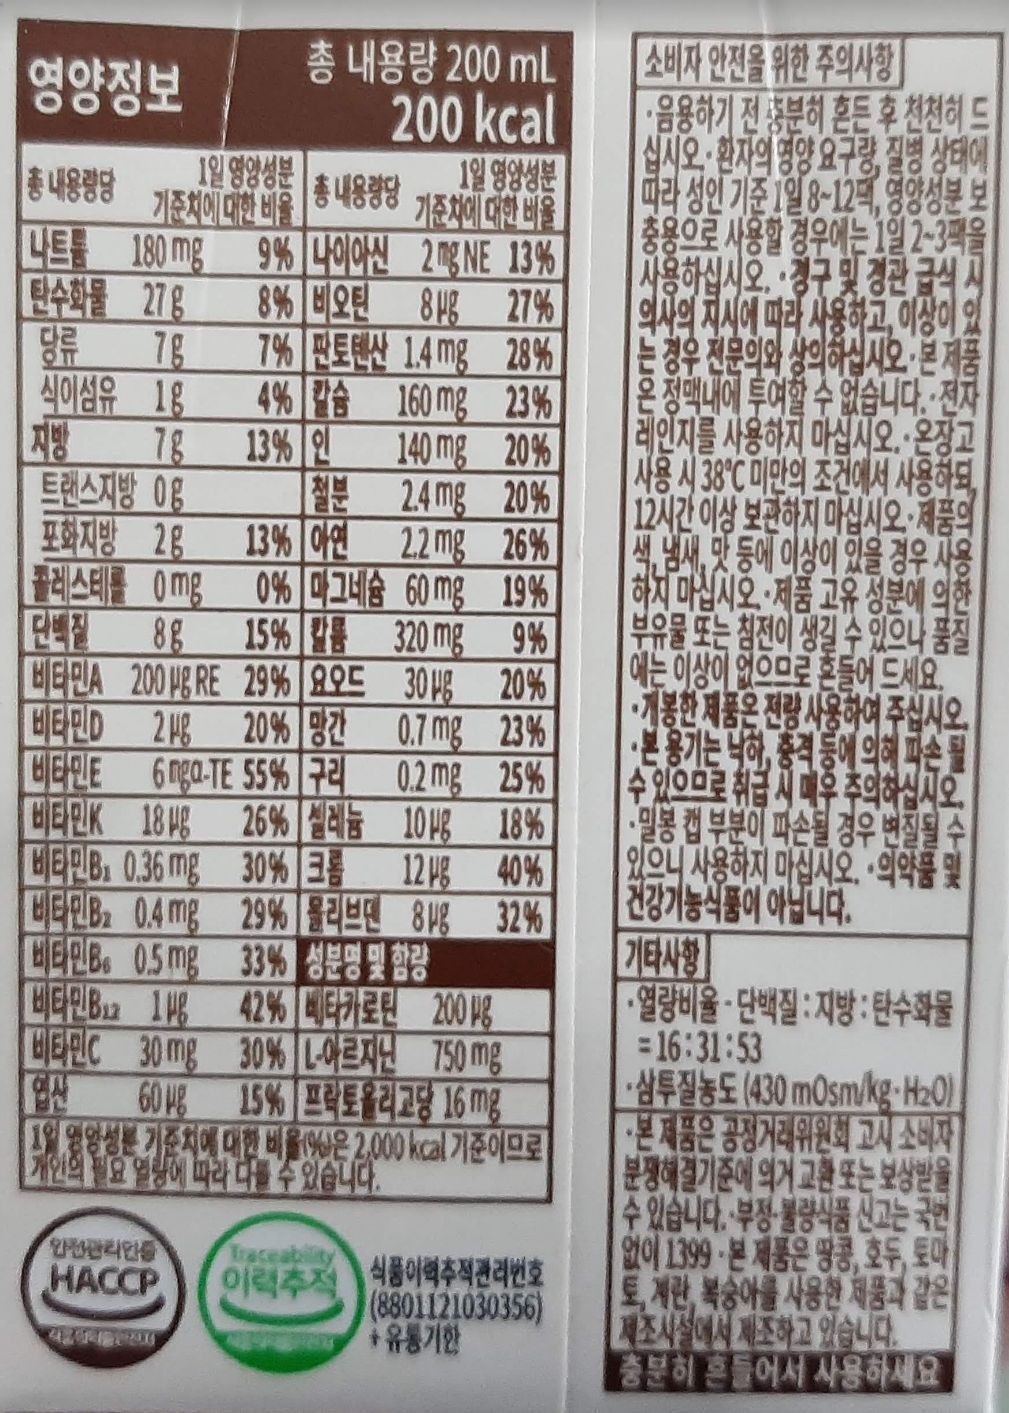 영양정보
총 내용량 200 mL
200 kcal
총 내용량당 1일 영양성분 기준치에 대한 비율 총 내용량당 1일 영양성분 기준치에 대한 비율
나트륨 180 mg 9% 나이아신 2 mg NE 13%
탄수화물 27 g 8% 비오틴 8 μg 27%
당류 7 g 7% 판토텐산 1.4 mg 28%
식이섬유 1 g 4% 칼슘 160 mg 23%
지방 7 g 13% 인 140 mg 20%
트랜스지방 0 g 철분 2.4 mg 20%
포화지방 2 g 13% 아연 2.2 mg 26%
콜레스테롤 0 mg 0% 마그네슘 60 mg 19%
단백질 8 g 15% 칼륨 320 mg 9%
비타민A 200 μg RE 29% 요오드 30 μg 20%
비타민D 2 μg 20% 망간 0.7 mg 23%
비타민E 6 mgα-TE 55% 구리 0.2 mg 25%
비타민K 18 μg 26% 셀레늄 10 μg 18%
비타민B₁ 0.36 mg 30% 크롬 12 μg 40%
비타민B₂ 0.4 mg 29% 몰리브덴 8 μg 32%
비타민B₆ 0.5 mg 33% 성분명 및 함량
비타민B₁₂ 1 μg 42% 베타카로틴 200 μg
비타민C 30 mg 30% L-아르지닌 750 mg
엽산 60 μg 15% 프락토올리고당 16 mg
1일 영양성분 기준치에 대한 비율(%)은 2,000 kcal 기준이므로
개인의 필요 열량에 따라 다를 수 있습니다.
안전관리인증
HACCP
Traceability
이력추적
식품이력추적관리번호
(8801121030356)
+유통기한
소비자 안전을 위한 주의사항
·음용하기 전 충분히 흔든 후 천천히 드
십시오.·환자의 영양 요구량, 질병 상태에
따라 성인 기준 1일 8~12팩, 영양성분 보
충용으로 사용할 경우에는 1일 2~3팩을
사용하십시오. ·경구 및 경관 급식 시
의사의 지시에 따라 사용하고, 이상이 있
는 경우 전문의와 상의하십시오.·본 제품
은 정맥내에 투여할 수 없습니다.·전자
레인지를 사용하지 마십시오.·온장고
사용 시 38℃ 미만의 조건에서 사용하되,
12시간 이상 보관하지 마십시오.·제품의
색, 냄새, 맛 등에 이상이 있을 경우 사용
하지 마십시오.·제품 고유 성분에 의한
부유물 또는 침전이 생길 수 있으나 품질
에는 이상이 없으므로 흔들어 드세요.
·개봉한 제품은 전량 사용하여 주십시오.
·본 용기는 낙하, 충격 등에 의해 파손 될
수 있으므로 취급 시 매우 주의하십시오.
·밀봉 캡 부분이 파손될 경우 변질될 수
있으니 사용하지 마십시오. ·의약품 및
건강기능식품이 아닙니다.
기타사항
·열량비율 - 단백질 : 지방 : 탄수화물
= 16 : 31 : 53
·삼투질농도 (430 mOsm/kg·H₂O)
·본 제품은 공정거래위원회 고시 소비자
분쟁해결기준에 의거 교환 또는 보상받을
수 있습니다. ·부정·불량식품 신고는 국번
없이 1399 ·본 제품은 땅콩, 호두, 토마
토, 계란, 복숭아를 사용한 제품과 같은
제조시설에서 제조하고 있습니다.
충분히 흔들어서 사용하세요